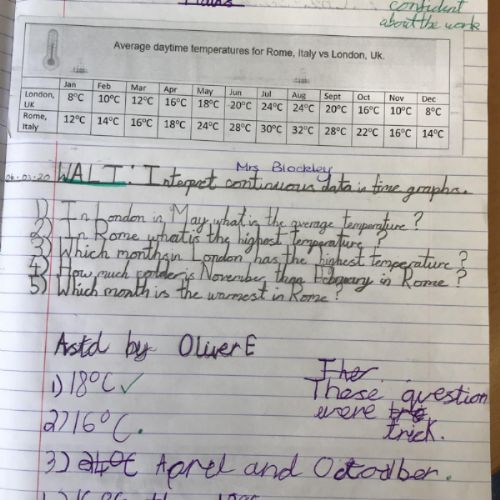 Maths
confident
about the work
Average daytime temperatures for Rome, Italy vs London, Uk.
Jan Feb Mar Apr May Jun Jul Aug Sept Oct Nov Dec
London, UK 8°C 10°C 12°C 16°C 18°C 20°C 24°C 24°C 20°C 16°C 10°C 8°C
Rome, Italy 12°C 14°C 16°C 18°C 24°C 28°C 30°C 32°C 28°C 22°C 16°C 14°C
Mrs Blockley
06.03.20 WALT: Interpret continuous data in time graphs.
1) In London in May what is the average temperature?
2) In Rome what is the highest temperature?
3) Which months in London has the highest temperature?
4) How much colder is November than February in Rome?
5) Which month is the warmest in Rome?
Astd by Oliver E
1) 18°C ✓
These question
were trick.
2) 16°C.
3) Aprel and Octodber.